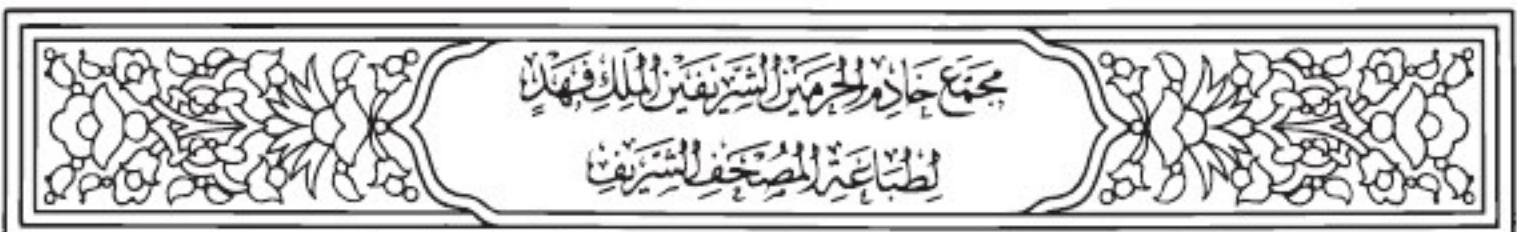 مجمّع خادم الحرمين الشريفين الملك فهد
لطباعة المصحف الشريف